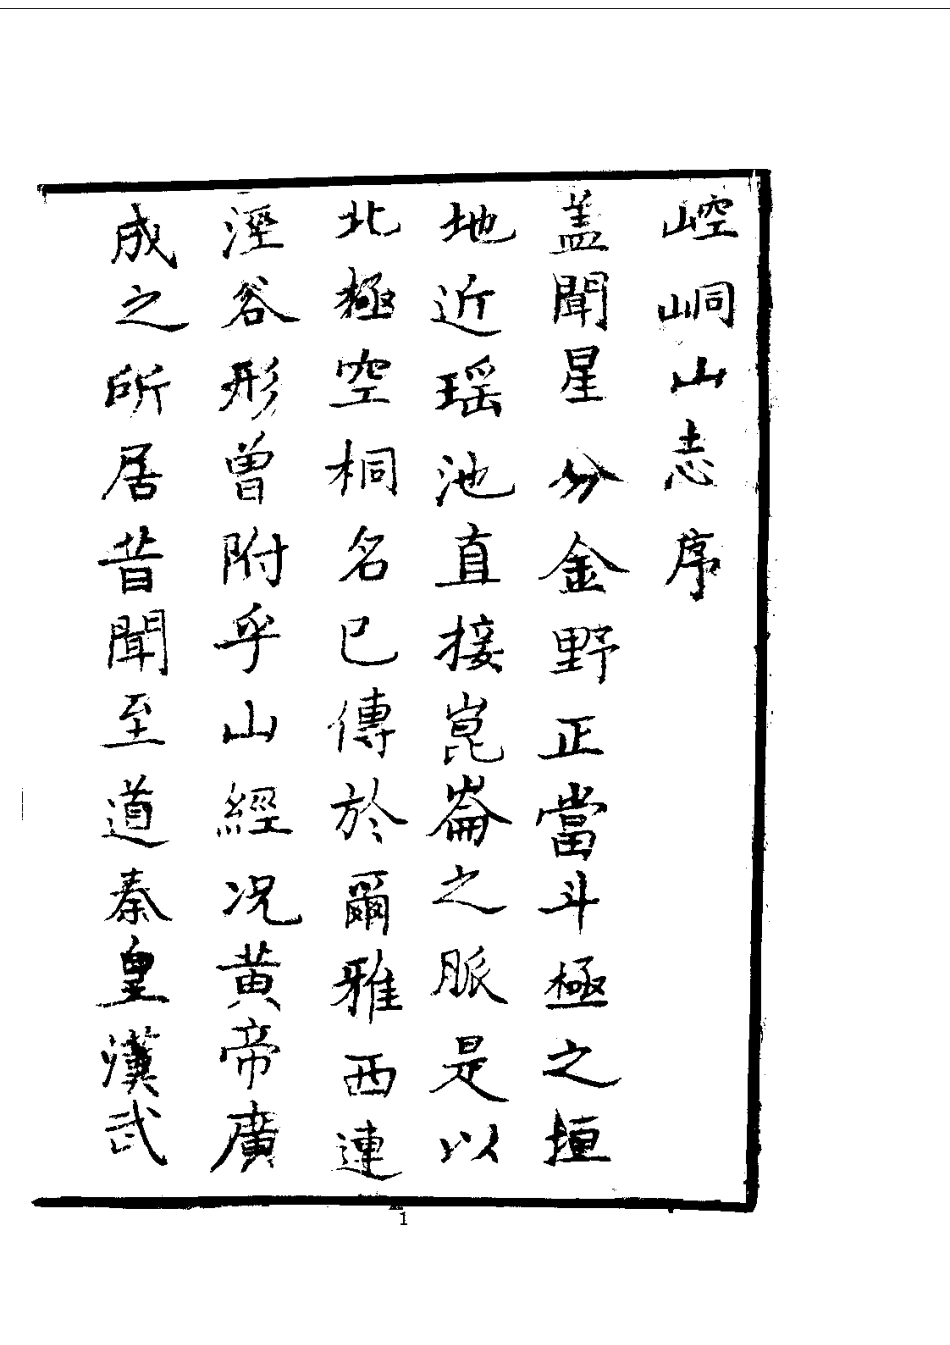 崆峒山志序
盖聞星分金野正當斗極之垣
地近瑶池直接崑崙之脈是以
北極空桐名已傳於爾雅西連
涇谷形曾附乎山經况黄帝廣
成之所居昔聞至道秦皇漢武
1